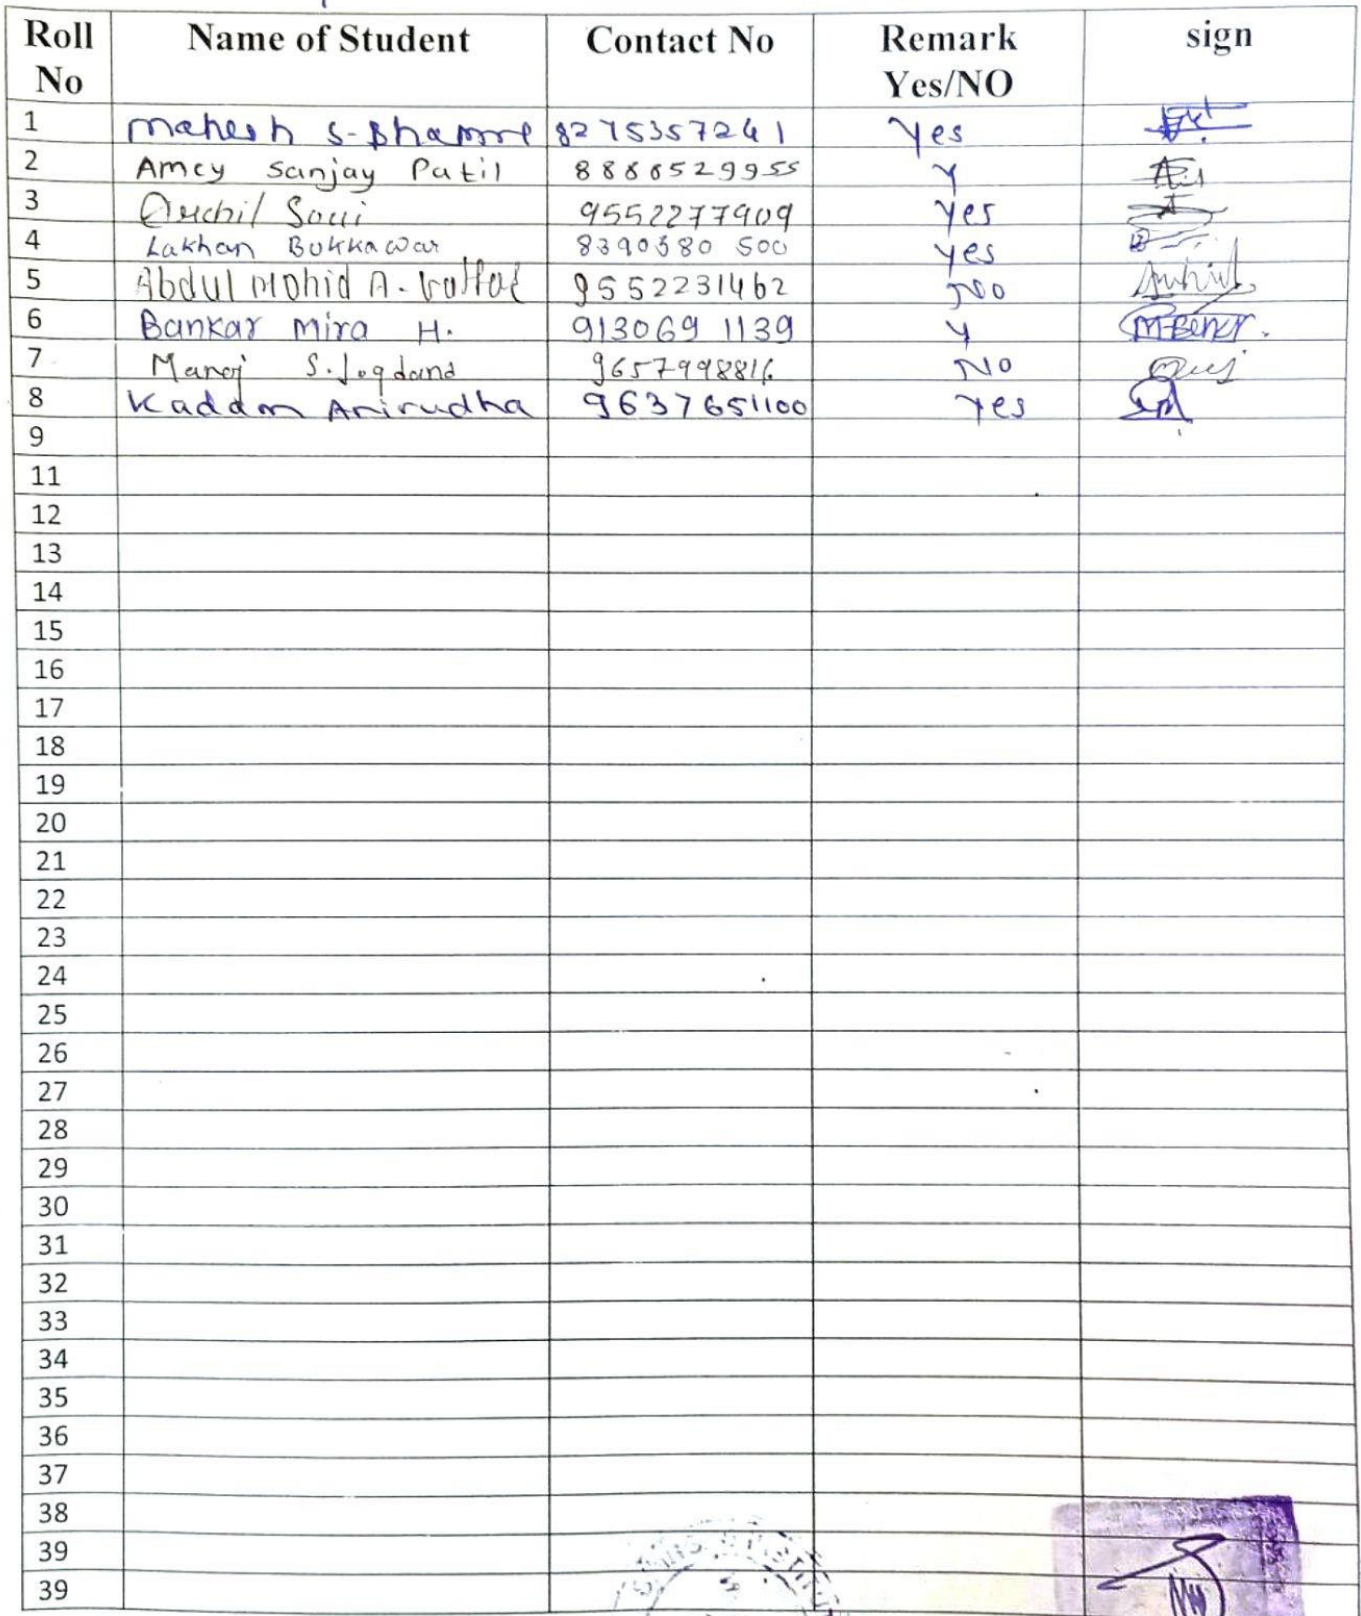 Roll No Name of Student Contact No Remark Yes/NO sign
1 Mahesh S. Bhamre 8275357241 Yes
2 Amey Sanjay Patil 8888529955 Y
3 9552277909 Yes
4 Lakhan Bukkawar 8390380 500 Yes
5 Abdul Mohid A. 9552231462 No
6 Bankar Mira H. 913069 1139 Y
7 Manoj S. Jogdand 9657998816 NO
8 Kadam Anirudha 9637651100 Yes
9
11
12
13
14
15
16
17
18
19
20
21
22
23
24
25
26
27
28
29
30
31
32
33
34
35
36
37
38
39
39